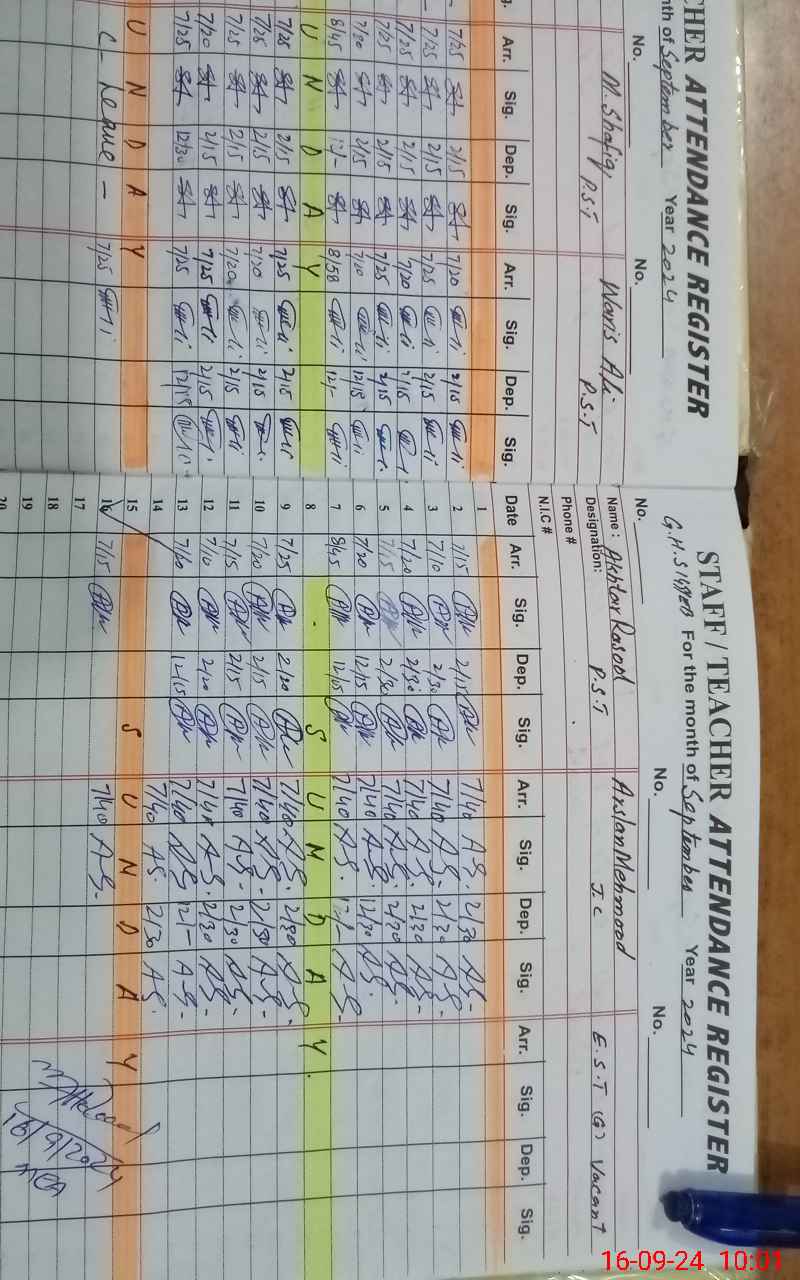 CHER ATTENDANCE REGISTER
nth of September Year 2024
No. No.
M. Shafiq, P.S.T Waris Ali P.S.T
Arr. Sig. Dep. Sig. Arr. Sig. Dep. Sig.
7/25 2/15 7/20 2/15
7/25 2/15 7/25 2/15
7/25 2/15 7/20 2/15
7/25 2/15 7/25 2/15
7/20 2/15 7/10 12/15
8/45 12/- 8/58 12/-
U N D A Y
7/25 2/15 7/25 2/15
7/25 2/15 7/20 2/15
7/25 2/15 7/20 2/15
7/20 2/15 7/25 2/15
7/25 12/30 7/25 12/15
U N D A Y
C - Leave - 7/25
STAFF / TEACHER ATTENDANCE REGISTER
For the month of September Year 2024
No. No. No.
Name: Akhtar Rasool Arslan Mehmood E.S.T (G) Vacant
Designation: P.S.T J.C
Phone #
N.I.C #
Date Arr. Sig. Dep. Sig. Arr. Sig. Dep. Sig. Arr. Sig. Dep. Sig.
1
2 7/15 2/15 7/40 A.S. 2/30 A.S.
3 7/10 2/30 7/40 A.S. 2/30 A.S.
4 7/20 2/30 7/40 A.S. 2/30 A.S.
5 7/15 2/30 7/40 A.S. 2/30 A.S.
6 7/20 12/15 7/40 A.S. 12/30 A.S.
7 8/45 12/05 7/40 A.S. 12/- A.S.
8 S U N D A Y.
9 7/25 2/20 7/40 A.S. 2/30 A.S.
10 7/20 2/15 7/40 A.S. 2/30 A.S.
11 7/15 2/15 7/40 A.S. 2/30 A.S.
12 7/10 2/20 7/40 A.S. 2/30 A.S.
13 7/20 12/15 7/40 A.S. 12/- A.S.
14 7/40 A.S. 2/30 A.S.
15 S U N D A Y
16 7/15 7/40 A.S.
17
18
19
20
16/9/2024
16-09-24 10:01